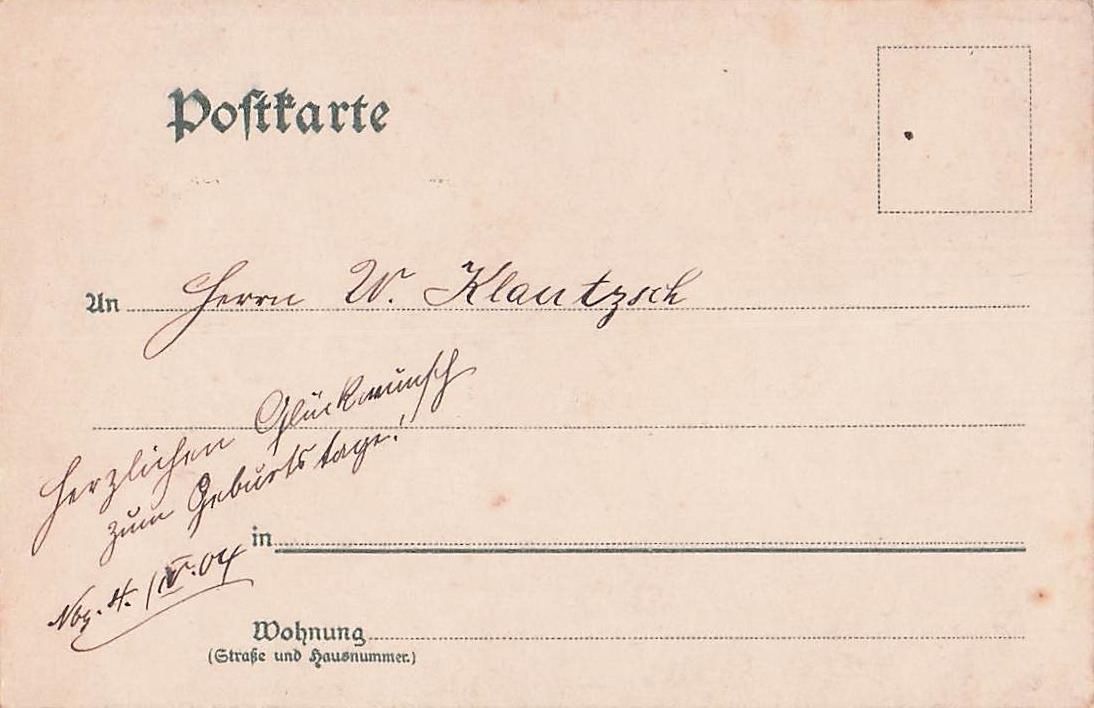 Postkarte
An Herrn W. Klautzsch
Herzlichen Glückwünsch
zum Geburtstage!
in
Nbg. 4. IV. 04
Wohnung
(Straße und Hausnummer.)